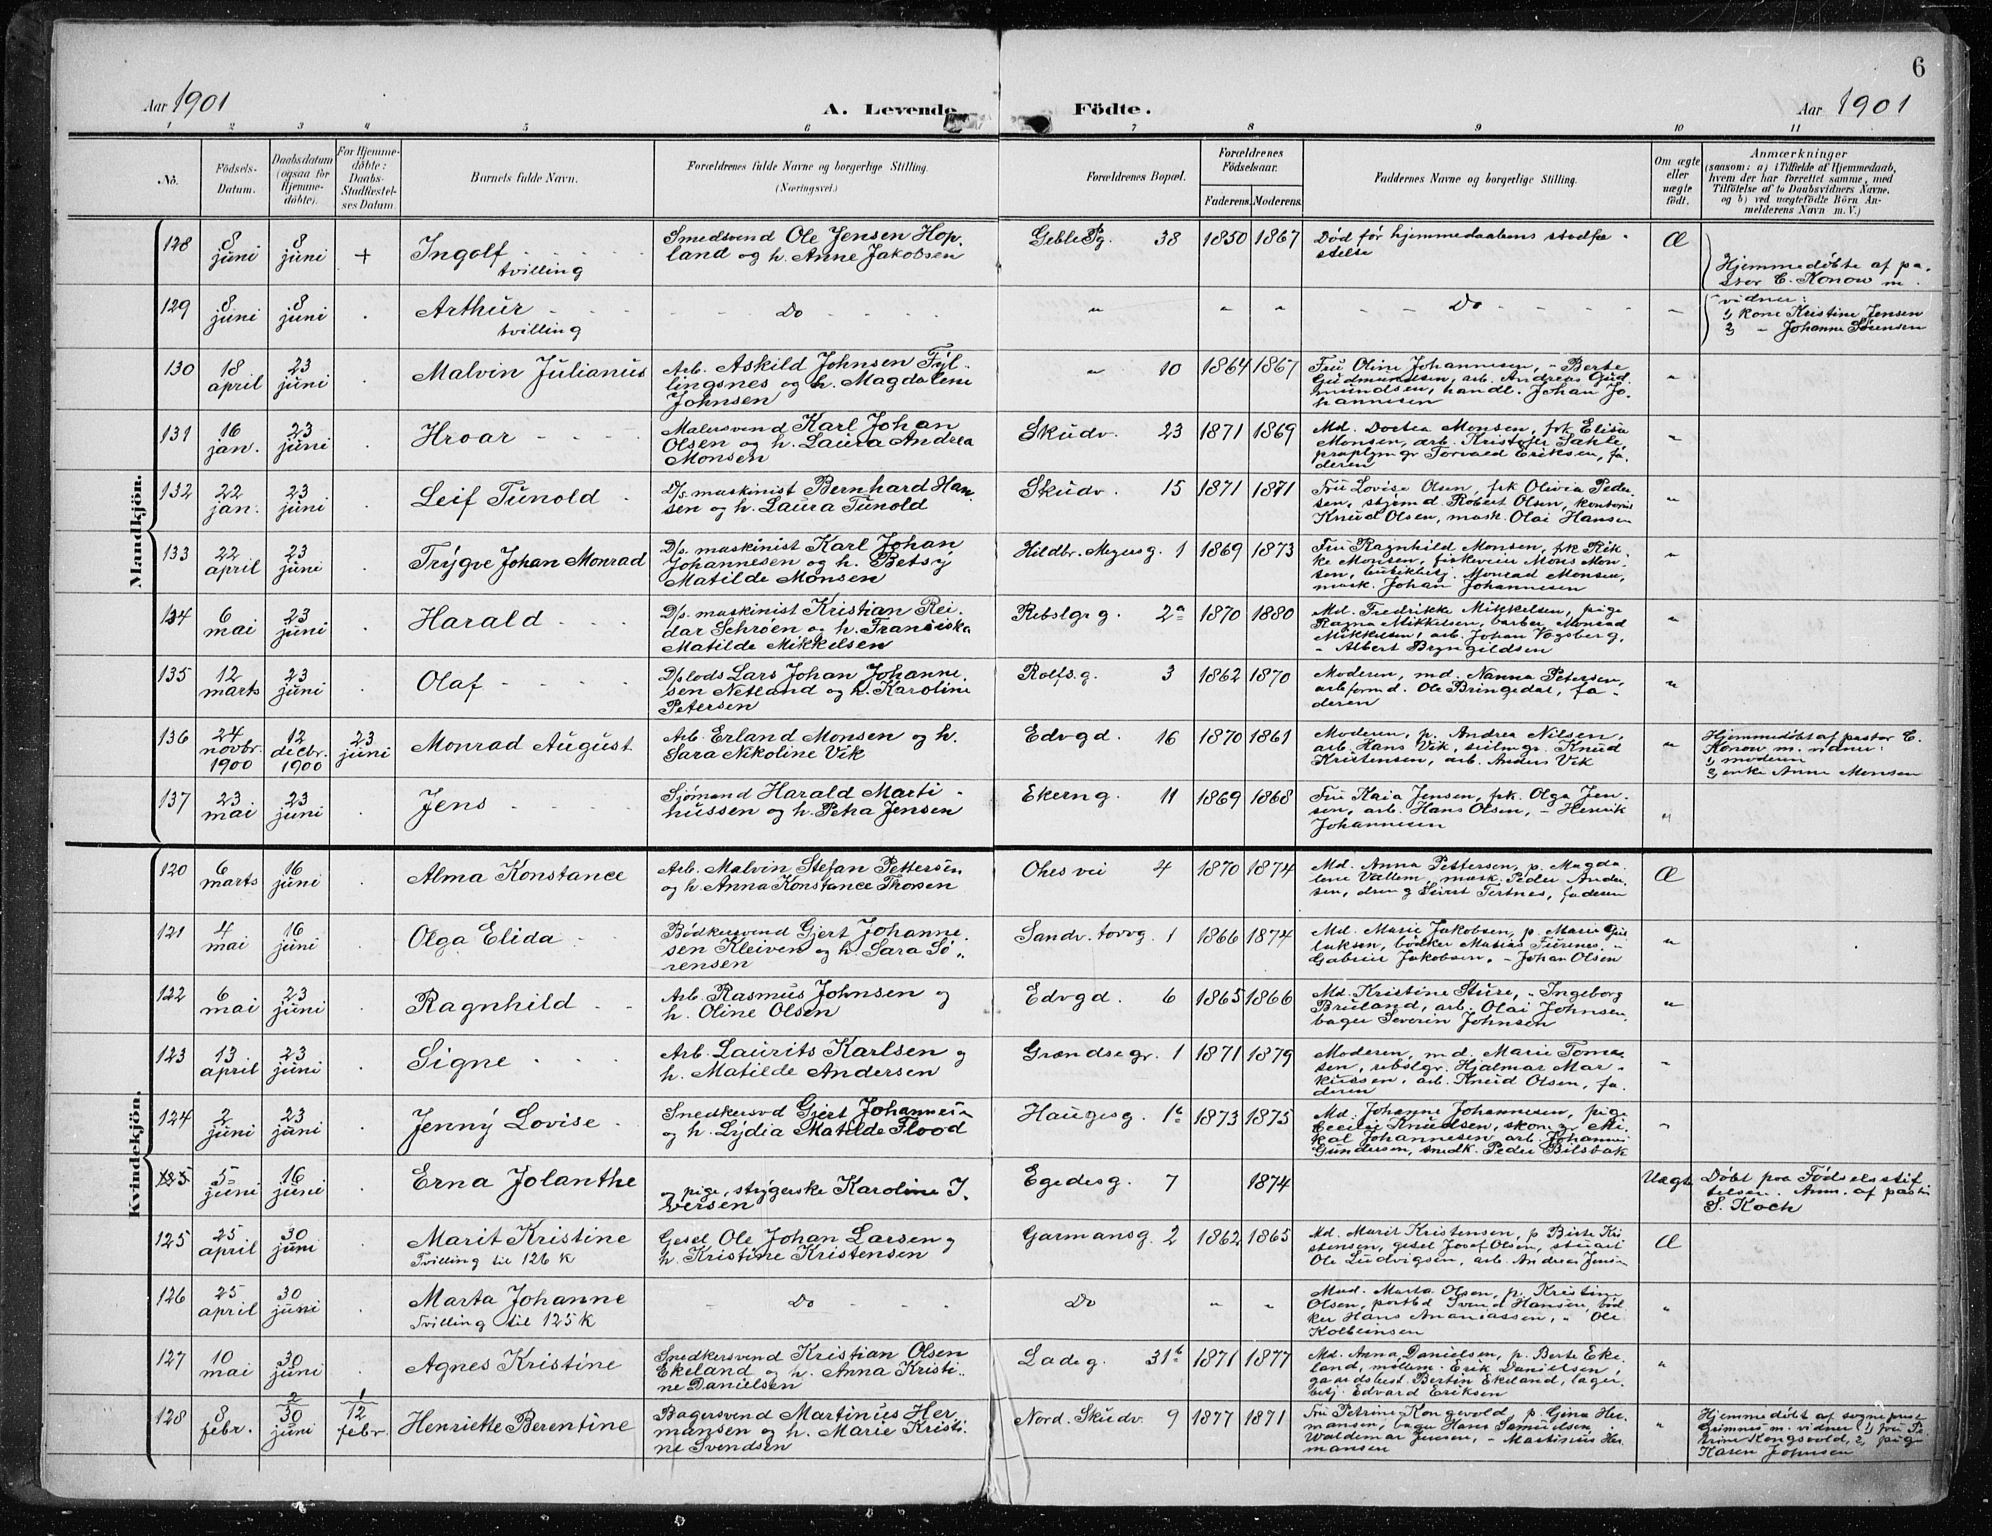 6
Aar 1901
A. Levende Födte.
Aar 1901
1 2 3 4 5 6 7 8 9 10 11
No.
Födsels-Datum.
Daabsdatum (ogsaa for Hjemmedöbte).
For Hjemmedöbte: Daabs-Stadfæstelses Datum.
Barnets fulde Navn.
Forældrenes fulde Navne og borgerlige Stilling.
(Næringsvei.)
Forældrenes Bopæl.
Forældrenes Födselsaar.
Faderens. Moderens.
Faddernes Navne og borgerlige Stilling.
Om ægte eller uægte födt.
Anmærkninger
(saasom: a) i Tilfælde af Hjemmedaab, hvem der har forrettet samme, med Tilföielse af to Daabsvidners Navne, og b) ved uægtefödte Börn Anmelderens Navn m. V.)
Mandkjön.
128 8 juni 8 juni + Ingolf tvilling
Smedsvend Ole Jensen Hopland og h. Anne Jakobsen
Geble Pg. 38 1850 1867
Død før hjemmedaabens stadfæstelse
Æ
Hjemmedøbte af pastor C. Konow m. vidner:
1) kone Kristine Jensen
2) " Johanne Sørensen
129 8 juni 8 juni . Arthur tvilling
Do " " " Do "
130 18 april 23 juni . Malvin Julianus
Arb. Askild Johnsen Fyllingsnes og h. Magdalene Johnsen
" 10 1864 1867
Fru Oline Johannesen, " Berte Gudmundsen, arb. Andreas Gudmundsen, handl. Johan Johannesen
"
131 16 jan. 23 juni . Hroar
Malersvend Karl Johan Olsen og h. Laura Andrea Monsen
Skudv. 23 1871 1869
Md. Dortea Monsen, frk Elisa Monsen, arb. Kristofer Sahle, Torvald Eriksen, faderen
"
132 22 jan. 23 juni . Leif Tunold
D/s. maskinist Bernhard Hansen og h. Laura Tunold
Skudv. 15 1871 1871
Fru Lovise Olsen, frk Olivia Pedersen, stjømd Robert Olsen, kontorist Knud Olsen, mask. Olai Hansen
"
133 22 april 23 juni . Trygve Johan Monrad
D/s. maskinist Karl Johan Johannesen og h. Betsy Matilde Monsen
Hildbr. Meyersg. 1 1869 1873
Fru Ragnhild Monsen, frk Rikke Monsen, fiskeveier Mons Monsen, butikbesj. Monrad Monsen, mask. Johan Johannesen
"
134 6 mai 23 juni . Harald
D/s. maskinist Kristian Reidar Schrøen og h. Fransiska Matilde Mikkelsen
Rebslgr g. 2a 1870 1880
Md. Fredrikke Mikkelsen, pige Ragna Mikkelsen, barber Monrad Mikkelsen, arb. Johan Vogsberg, " Albert Bryngildsen
"
135 12 marts 23 juni . Olaf
D/s lods Lars Johan Johannesen Netland og h. Karoline Petersen
Rolfs.g. 3 1862 1870
Moderen, md. Nanna Petersen, arbformd. Ole Bringedal, faderen
"
136 24 novbr. 1900 12 decbr. 1900 23 juni Monrad August
Arb. Erland Monsen og h. Sara Nikoline Vik
Edvgd. 16 1870 1861
Moderen, p. Andrea Nilsen, arb. Hans Vik, seilmgr. Knud Kristensen, arb. Anders Vik
"
Hjemmedøbt af pastor C. Konow m. vidner:
1) moderen
2) enke Anne Monsen
137 23 mai 23 juni . Jens
Sjømand Harald Martinussen og h. Petra Jensen
Ekerng. 11 1869 1868
Fru Kaia Jensen, frk. Olga Jensen, arb. Hans Olsen, " Henrik Johannesen
"
Kvindekjön.
120 6 marts 16 juni . Alma Konstance
Arb. Malvin Stefan Pettersen og h. Anna Konstance Thorsen
Ohes vei 4 1870 1874
Md. Anna Pettersen, p. Magdalene Vallem, mask. Peder Andersen, dreng Sivert Tertnes, faderen
Æ
121 4 mai 16 juni . Olga Elida
Bødkersvend Gjert Johannesen Kleiven og h. Sara Sørensen
Sandv. torvg. 1 1866 1874
Md. Marie Jakobsen, p. Marie Gullaksen, bødker Matias Furenes, " Gabriel Jakobsen, " Johan Olsen
"
122 6 mai 23 juni . Ragnhild
Arb. Rasmus Johnsen og h. Oline Olsen
Edvgd. 6 1865 1866
Md. Kristine Sture, " Ingeborg Bruland, arb. Olai Johnsen, bager Severin Johnsen
"
123 13 april 23 juni . Signe
Arb. Laurits Karlsen og h. Matilde Andersen
Grændsegr. 1 1871 1879
Moderen, md. Marie Tomasen, rebslgr. Hjalmar Markussen, arb. Knud Olsen, faderen
"
124 2 juni 23 juni . Jenny Lovise
Snedkersvd Gjert Johannesen og h. Lydia Matilde Flood
Haugesg. 1c 1873 1875
Md. Johanne Johannesen, pige Cecilie Knudsen, skomgr. Mikal Johannesen, arb. Johannes Gundersen, snedk. Peder Bilsbak
"
125 5 juni 16 juni Erna Jolanthe
pige, strygerske Karoline Iversen
Egedesg. 7 1874
Uægt.
Døbt paa Fødselsstiftelsen. Anm. af pastor S. Koch
125 25 april 30 juni . Marit Kristine Tvilling til 126 K
Gesel Ole Johan Larsen og h. Kristine Kristensen
Garmansg. 2 1862 1865
Md. Marit Kristensen, p Berte Kristensen, gesel Josef Olsen, stuart Ole Ludvigsen, arb. Andreas Jensen
Æ
126 25 april 30 juni . Marta Johanne Tvilling til 125 K
Do Do " "
Mad. Marta Olsen, p. Kristine Olsen, postbd Svend Hansen, bødker Hans Ananiassen, " Ole Kolbeinsen
"
127 10 mai 30 juni . Agnes Kristine
Snedkersvend Kristian Olsen Ekeland og h. Anna Kristine Danielsen
Ladeg. 31b 1871 1877
Md. Anna Danielsen, p. Berte Ekeland, møllem. Erik Danielsen, gaardsbest. Bertin Ekeland, lagerbesj. Edvard Eriksen
"
128 8 febr. 2/30 juni 1/12 febr. Henriette Berentine
Bagersvend Martinus Hermansen og h. Marie Kristine Svendsen
Nord. Skudv. 9 1877 1871
Fru Petrine Kongsvold, p. Gjina Hermansen, bager Hans Samuelsen, Waldemar Jensen, " Martinus Hermansen
"
Hjemmedøbt af sognepræst Grimnes m. vidner 1) fru Petrine Kongsvold, 2) pige Karen Johnsen